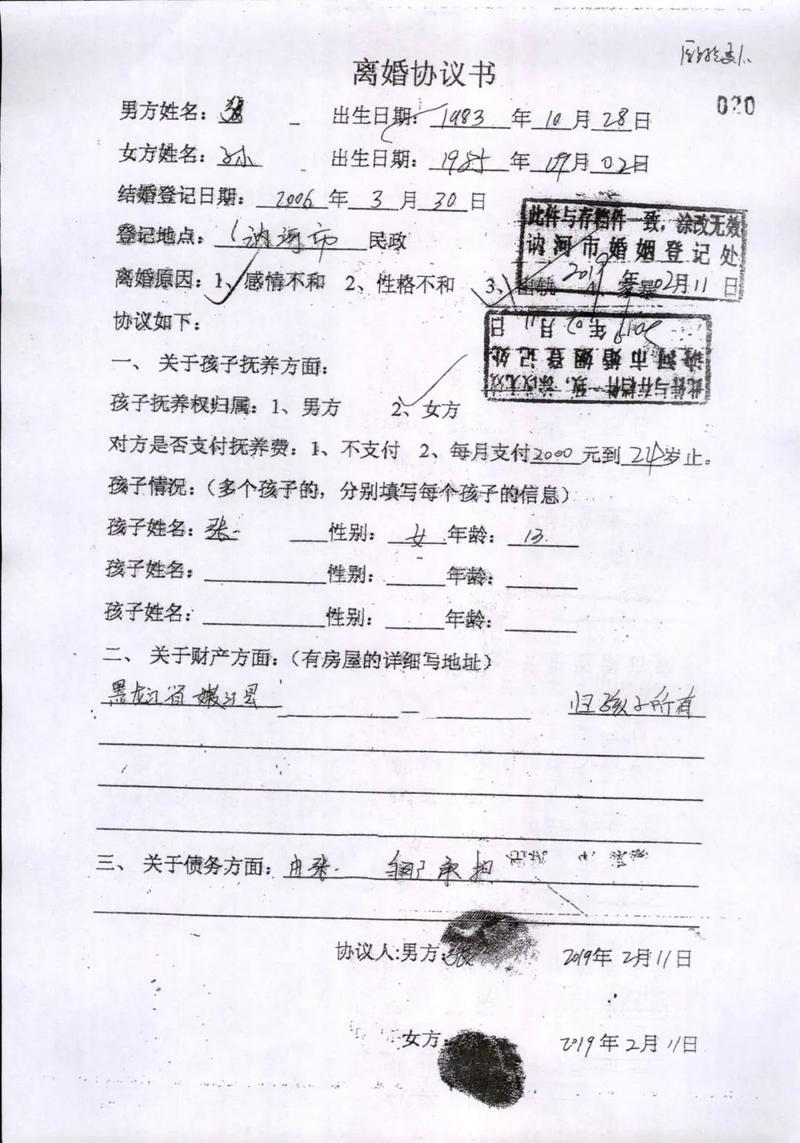 离婚协议书
020
男方姓名：张 出生日期：1983 年 10 月 28 日
女方姓名：孙 出生日期：1985 年 09 月 02 日
结婚登记日期：2006 年 3 月 30 日
登记地点：讷河市 民政
此件与存档件一致，涂改无效
讷河市婚姻登记处
2019 年 02 月 11 日
离婚原因：1、感情不和 2、性格不和 3、
协议如下：
此件与存档件一致，涂改无效
讷河市婚姻登记处
年 02 月 11 日
一、关于孩子抚养方面：
孩子抚养权归属：1、男方 2、女方
对方是否支付抚养费：1、不支付 2、每月支付2000元到 24 岁止。
孩子情况：（多个孩子的，分别填写每个孩子的信息）
孩子姓名：张 性别：女 年龄：13
孩子姓名： 性别： 年龄：
孩子姓名： 性别： 年龄：
二、关于财产方面：（有房屋的详细写地址）
黑龙江省嫩江县 归孩子所有
三、关于债务方面：由张 承担
协议人:男方：张 2019年 2月 11日
女方： 2019 年 2 月 11日